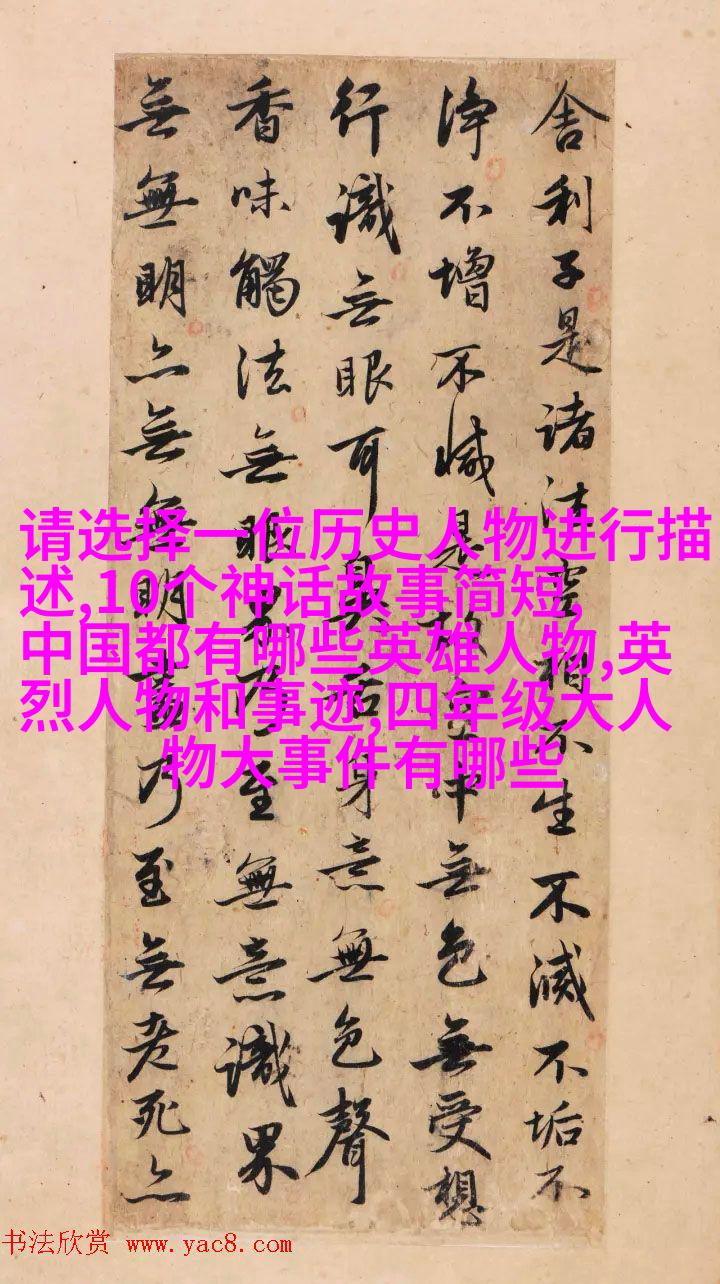 舍利子是諸法空相不生不滅不垢不
淨不增不減是故空中無色無受想
行識無眼耳鼻舌身意無色聲
香味觸法無眼界乃至無意識界
無無明亦無無明盡乃至無老死亦
请选择一位历史人物进行描
述,10个神话故事简短,
中国都有哪些英雄人物,英
烈人物和事迹,四年级大人
物大事件有哪些
书法欣赏 www.yac8.com